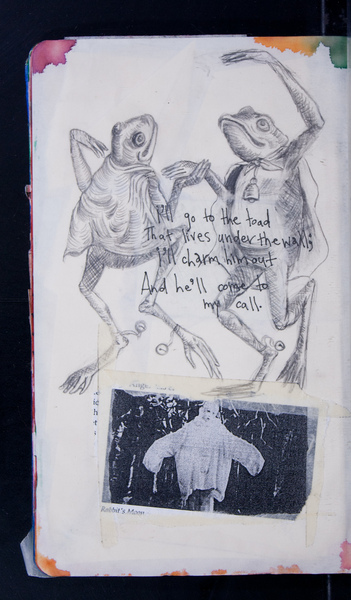 I'll go to the toad
That lives under the wall;
I'll charm him out
And he'll come to
my call.
Rabbit's Moon